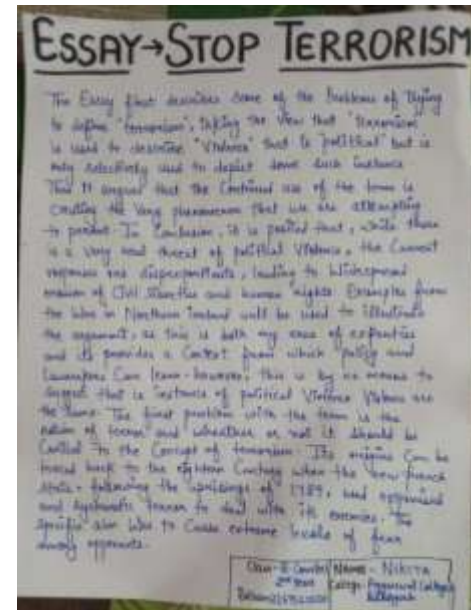 ESSAY→STOP TERRORISM
The Essay first describes some of the Problems of Trying
to define "terrorism", taking the view that "Terrorism
is used to describe "Violence" that is "political" but is
only selectively used to depict some such instance
This is argues that the Continued use of the term is
creating the Very phenomenon that we are attempting
to In Conclusion, it is posited that, while there
is a very real threat of political Violence, the Current
responses are disproportionate, leading to Widespread
erosion of Civil liberties and human rights. Examples from
the War in Northern Ireland will be used to illustrate
the argument, as this is both my area of expertise
and its provides a Context from which policy and
Lawmakers Can learn- however, this is by no means to
suggest that is instance of political Violence are
the Same. The first problem with the term is the
notion of terror and whether or not it should be
Central to the Concept of terrorism. Its origins Can be
traced back to the eighteen Century when the new french
State, following the uprisings of 1789, used organised
and systematic terror to deal with its enemies. The
specific aim Was to Cause extreme levels of fear
among opponents.
Name - Nikita
2nd year
College